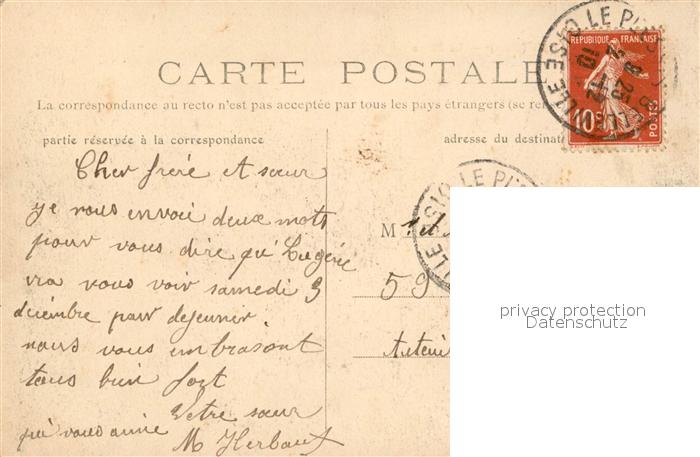 CARTE POSTALE
La correspondance au recto n'est pas acceptée par tous les pays étrangers (se ren
partie réservée à la correspondance
adresse du destinat
REPUBLIQUE FRANÇAISE
10c
POSTES
Cher frére et sœur
je vous envoie deux mots
pour vous dire qu'Eugénie
vra vous voir samedi 3
décembre pour dejeunir
nous vous embrasont
tous bien fort
Votre sœur
qui vous aime
M Herbaut
M
59
Auteui
privacy protection
Datenschutz